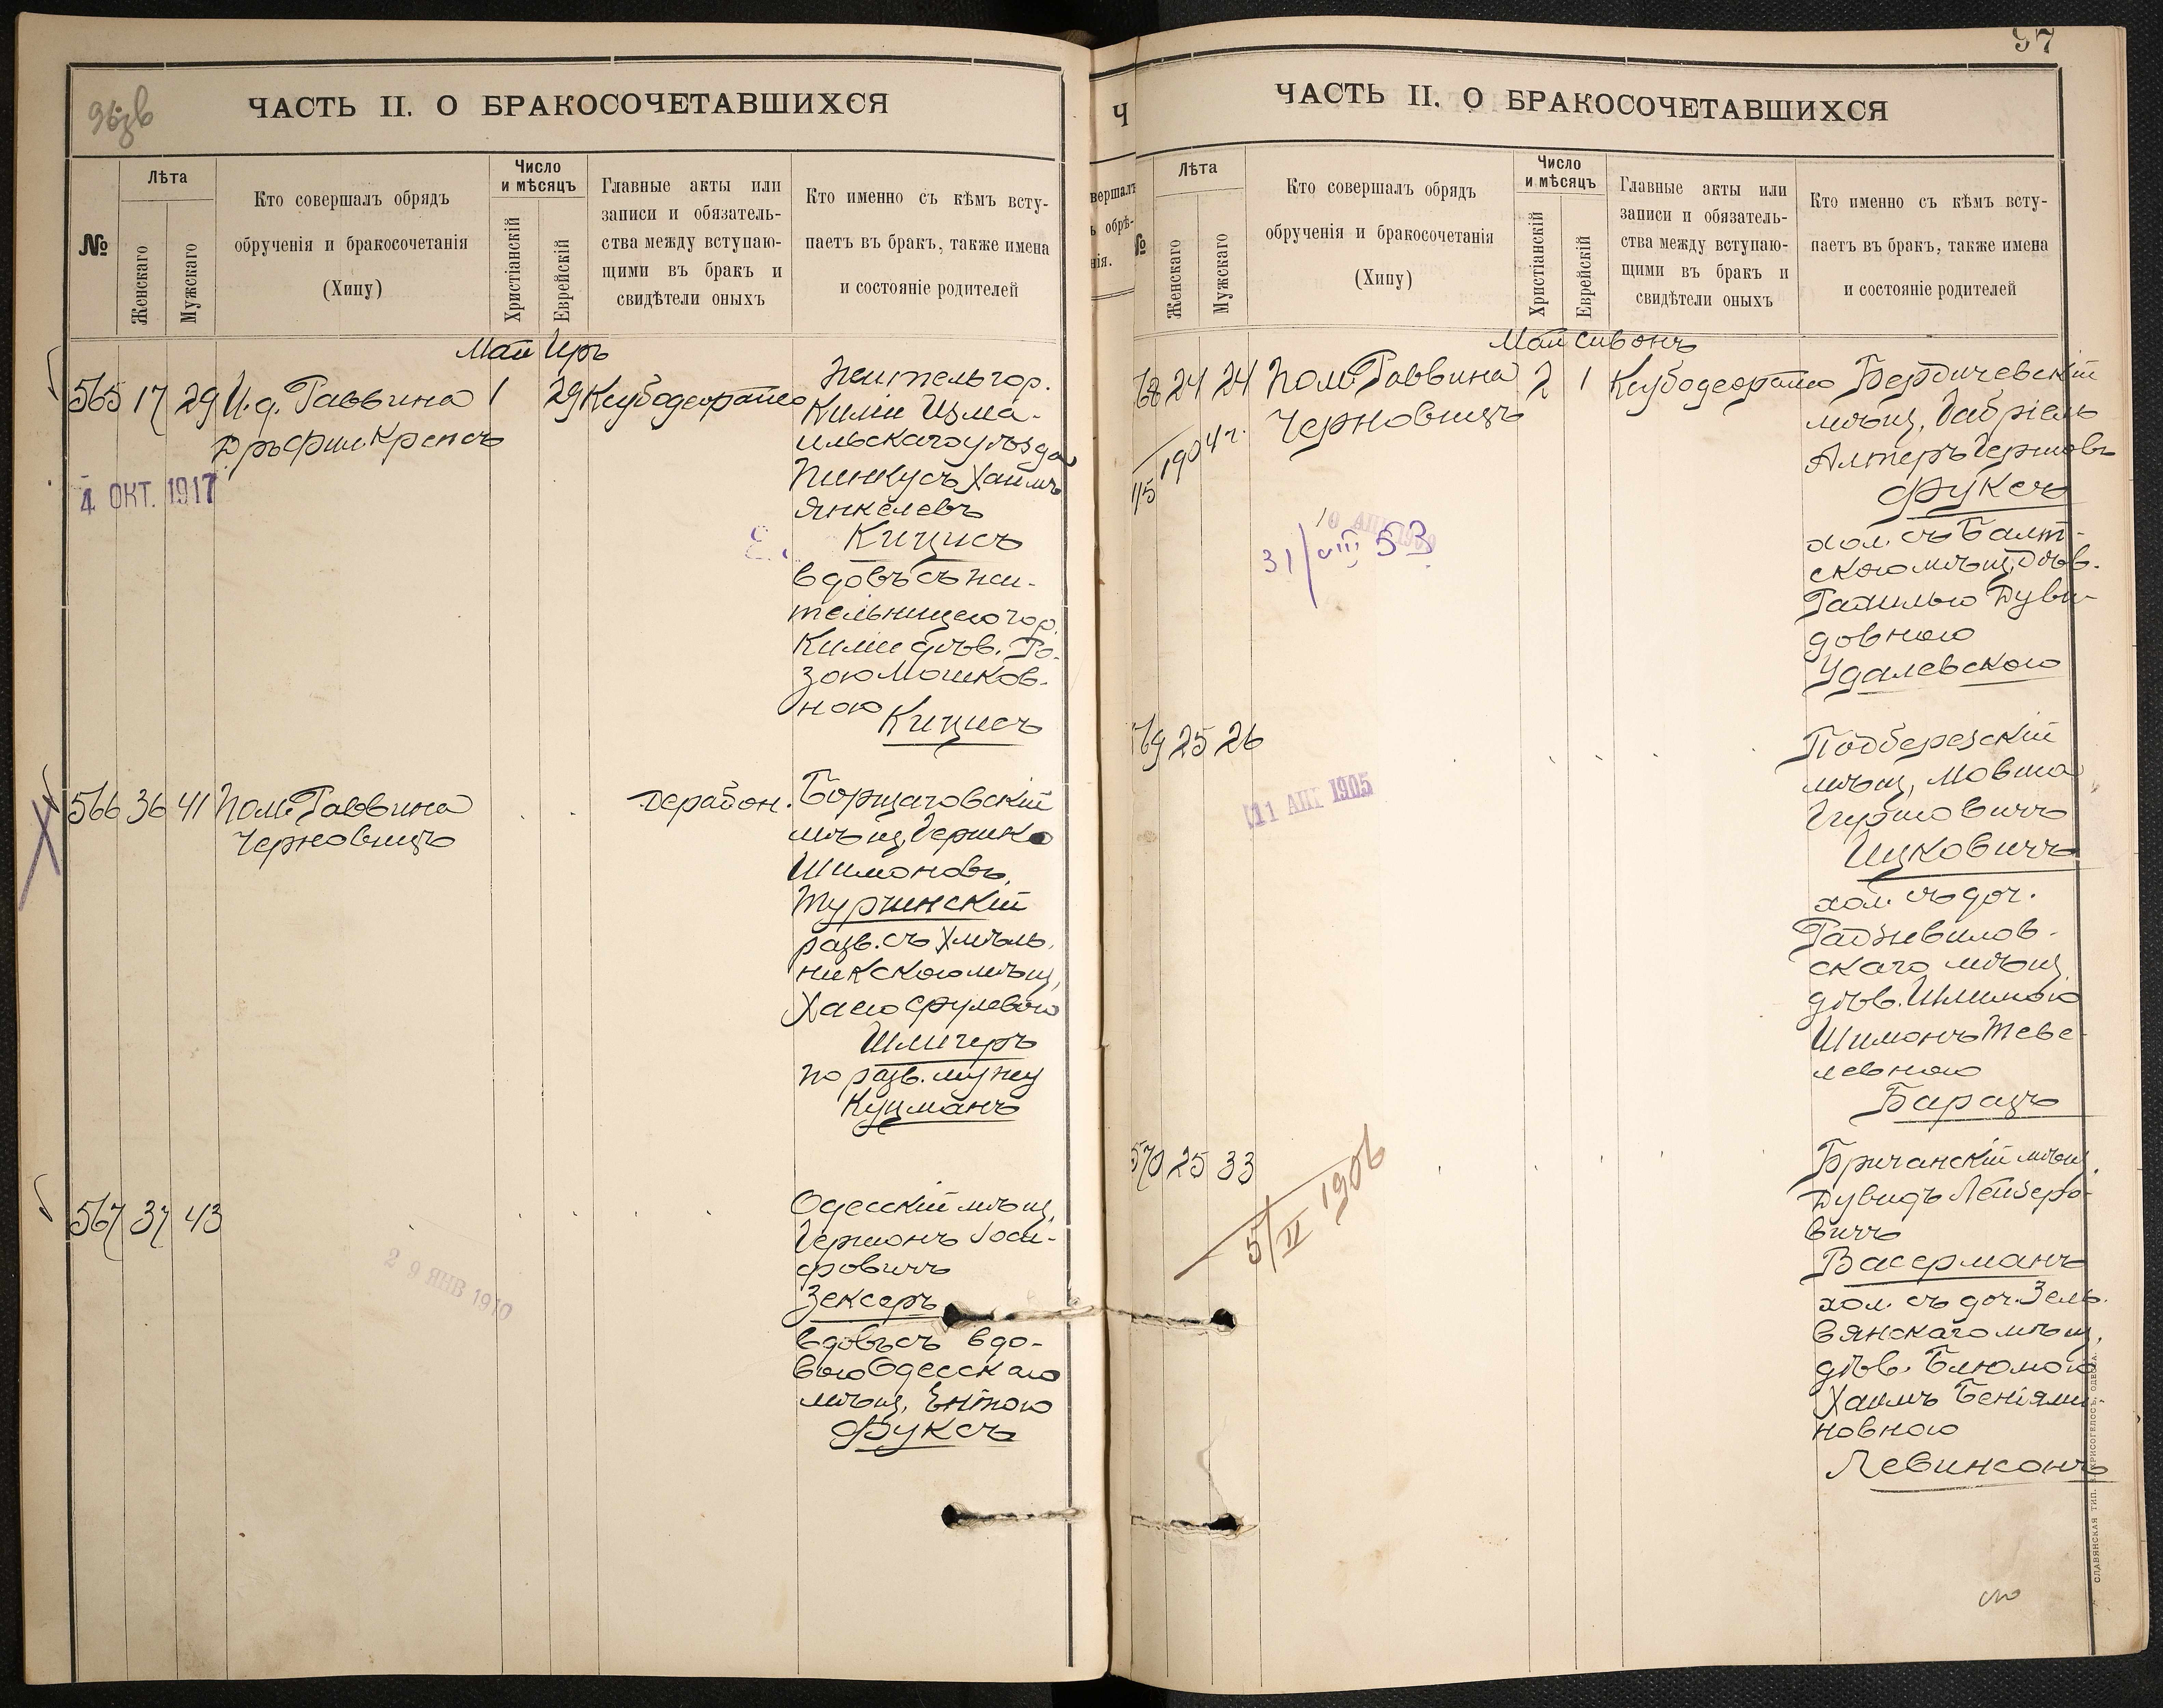 96 зв
ЧАСТЬ II. О БРАКОСОЧЕТАВШИХСЯ
№
Лѣта
Женскаго
Мужскаго
Кто совершалъ обрядъ
обрученія и бракосочетанія
(Хипу)
Число
и мѣсяцъ
Христіанскій
Еврейскій
Главные акты или
записи и обязатель-
ства между вступаю-
щими въ бракъ и
свидѣтели оныхъ
Кто именно съ кѣмъ всту-
паетъ въ бракъ, также имена
и состояніе родителей
Май Иръ
565 17 29 И. д. Раввина 1 29 Ксубодеорайсо
Дръ Фил Крепсъ
4 ОКТ. 1917
Жительгор.
Киліи Изма-
ильскагоуѣзда
Пинкусъ Хаимъ
Янкелевъ
Кицисъ
вдовъ съ жи-
тельницеюгор.
Киліи дѣв. Ро-
зою Мошков-
ною Кицисъ
566 36 41 Пом. Раввина
Черновицъ
Дерабон.
Борщаговскій
мѣщ. Гершко
Шимоновъ
Турчинскій
разв. съ Хмѣль-
никскою мѣщ,
Хаею Срулевою
Шлигеръ
по разв. мужу
Куцманъ
567 37 43
2 9 ЯНВ 1910
Одесскій мѣщ,
Гершонъ Іоси-
фовичъ
Зексеръ
вдовъ съ вдо-
вою Одесскаго
мѣщ, Ентою
Фуксъ
97
Ч
вершалъ
ЧАСТЬ II. О БРАКОСОЧЕТАВШИХСЯ
№
Лѣта
Женскаго
Мужскаго
Кто совершалъ обрядъ
обрученія и бракосочетанія
(Хипу)
Число
и мѣсяцъ
Христіанскій
Еврейскій
Главные акты или
записи и обязатель-
ства между вступаю-
щими въ бракъ и
свидѣтели оныхъ
Кто именно съ кѣмъ всту-
паетъ въ бракъ, также имена
и состояніе родителей
Май Сивонъ
68 24 24 Пом. Раввина 2 1 Ксубодеорайсо
Черновицъ
1904 г.
31/VIII 53
Бердичевскій
мѣщ, Габріель
Алтеръ Гершовъ
Фуксъ
хол. съ Балт-
скою мѣщ, дѣв.
Рахилью Дуви-
довною
Удалевскою
69 25 26
11 АПР 1905
Подберезскій
мѣщ, Мовша
Гиршовичъ
Ицковичъ
хол. съ доч.
Радзивилов-
скаго мѣщ,
дѣв. Шлимою
Шимонъ Теве-
левною
Барацъ
570 25 33
5/II 1906
Бричанскій мѣщ,
Дувидъ Лейзеро-
вичъ
Васерманъ
хол. съ доч. Зель-
вянскаго мѣщ,
дѣв. Блюмою
Хаимъ Беніями-
новною
Левинсонъ
СЛАВЯНСКАЯ ТИП. Н. ХРИСОГЕЛОСЪ, ОДЕССА.